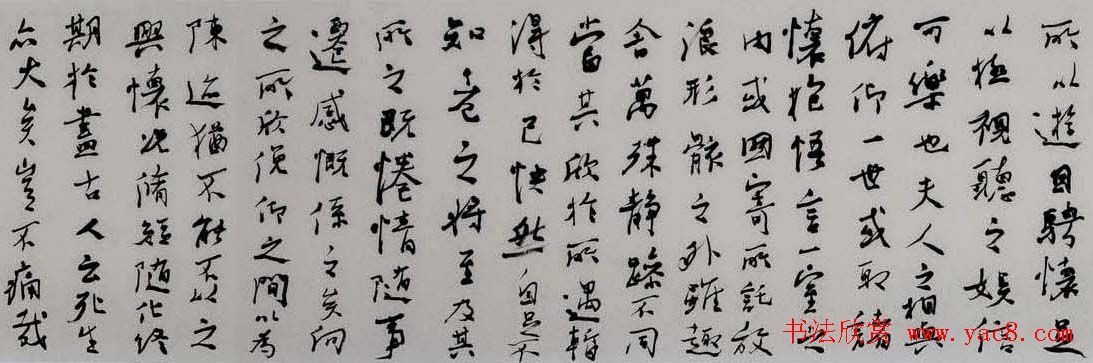 所以遊目騁懷足
以極視聽之娛信
可樂也夫人之相與
俯仰一世或取諸
懷抱悟言一室之
內或因寄所託放
浪形骸之外雖趣
舍萬殊靜躁不同
當其欣於所遇暫
得於己快然自足不
知老之將至及其
所之既惓情隨事
遷感慨係之矣向
之所欣俛仰之間以為
陳迹猶不能不以之
興懷況脩短隨化終
期於盡古人云死生
亦大矣豈不痛哉
书法欣赏 www.yac8.com